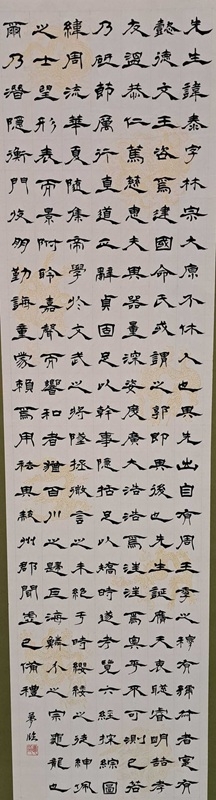 先生諱泰字林宗太原介休人也其先出自有周王季之穆有虢叔者寔有
懿德文王咨焉建國命氏或謂之郭即其後也先生誕膺天衷聰睿明哲孝
友溫恭仁篤慈惠夫其器量深姿度廣大浩浩焉汪汪焉奧乎不可測已若
乃砥節厲行直道正辭貞固足以幹事隱括足以矯時遂考覽六經探綜圖
緯周流華夏隨集帝學收文武之將墜拯微言之未絕于時纓緌之徒紳佩
之士望形表而景附聆嘉聲而響和者猶百川之歸巨海鱗介之宗龜龍也
爾乃潛隱衡門收朋勤誨童蒙賴焉用祛其蔽州郡聞虛己備禮